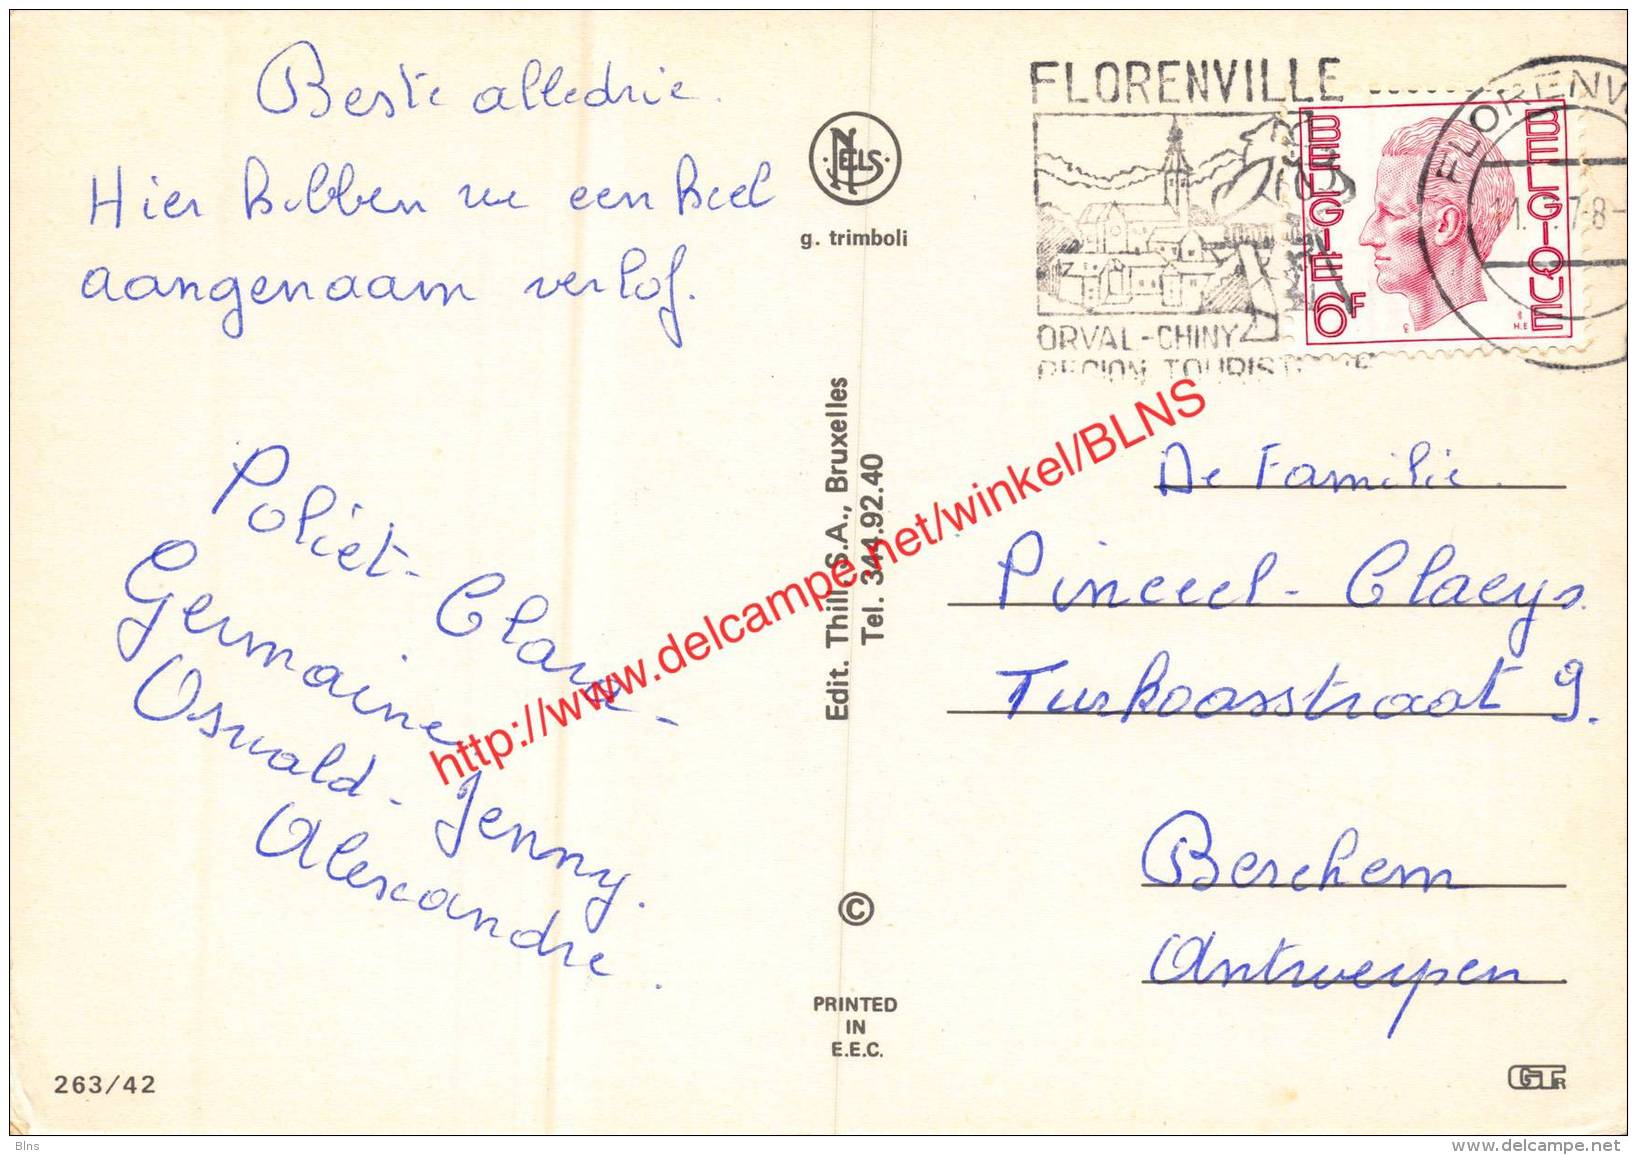 Beste alledrie.
Hier hebben we een heel
aangenaam verlof.
Poliet - Clara -
Germaine
Oswald - Jenny.
Alexandre.
263/42
NELS
g. trimboli
Edit. Thill, S.A., Bruxelles
Tel. 344.92.40
©
PRINTED
IN
E.E.C.
FLORENVILLE
ORVAL-CHINY
REGION TOURISTIQUE
FLORENV
BELGIE 6F
BELGIQUE
De Familie.
Pinceel - Claeys.
Turkooisstraat 9.
Berchem
Antwerpen
GTR
http://www.delcampe.net/winkel/BLNS
Blns
www.delcampe.net